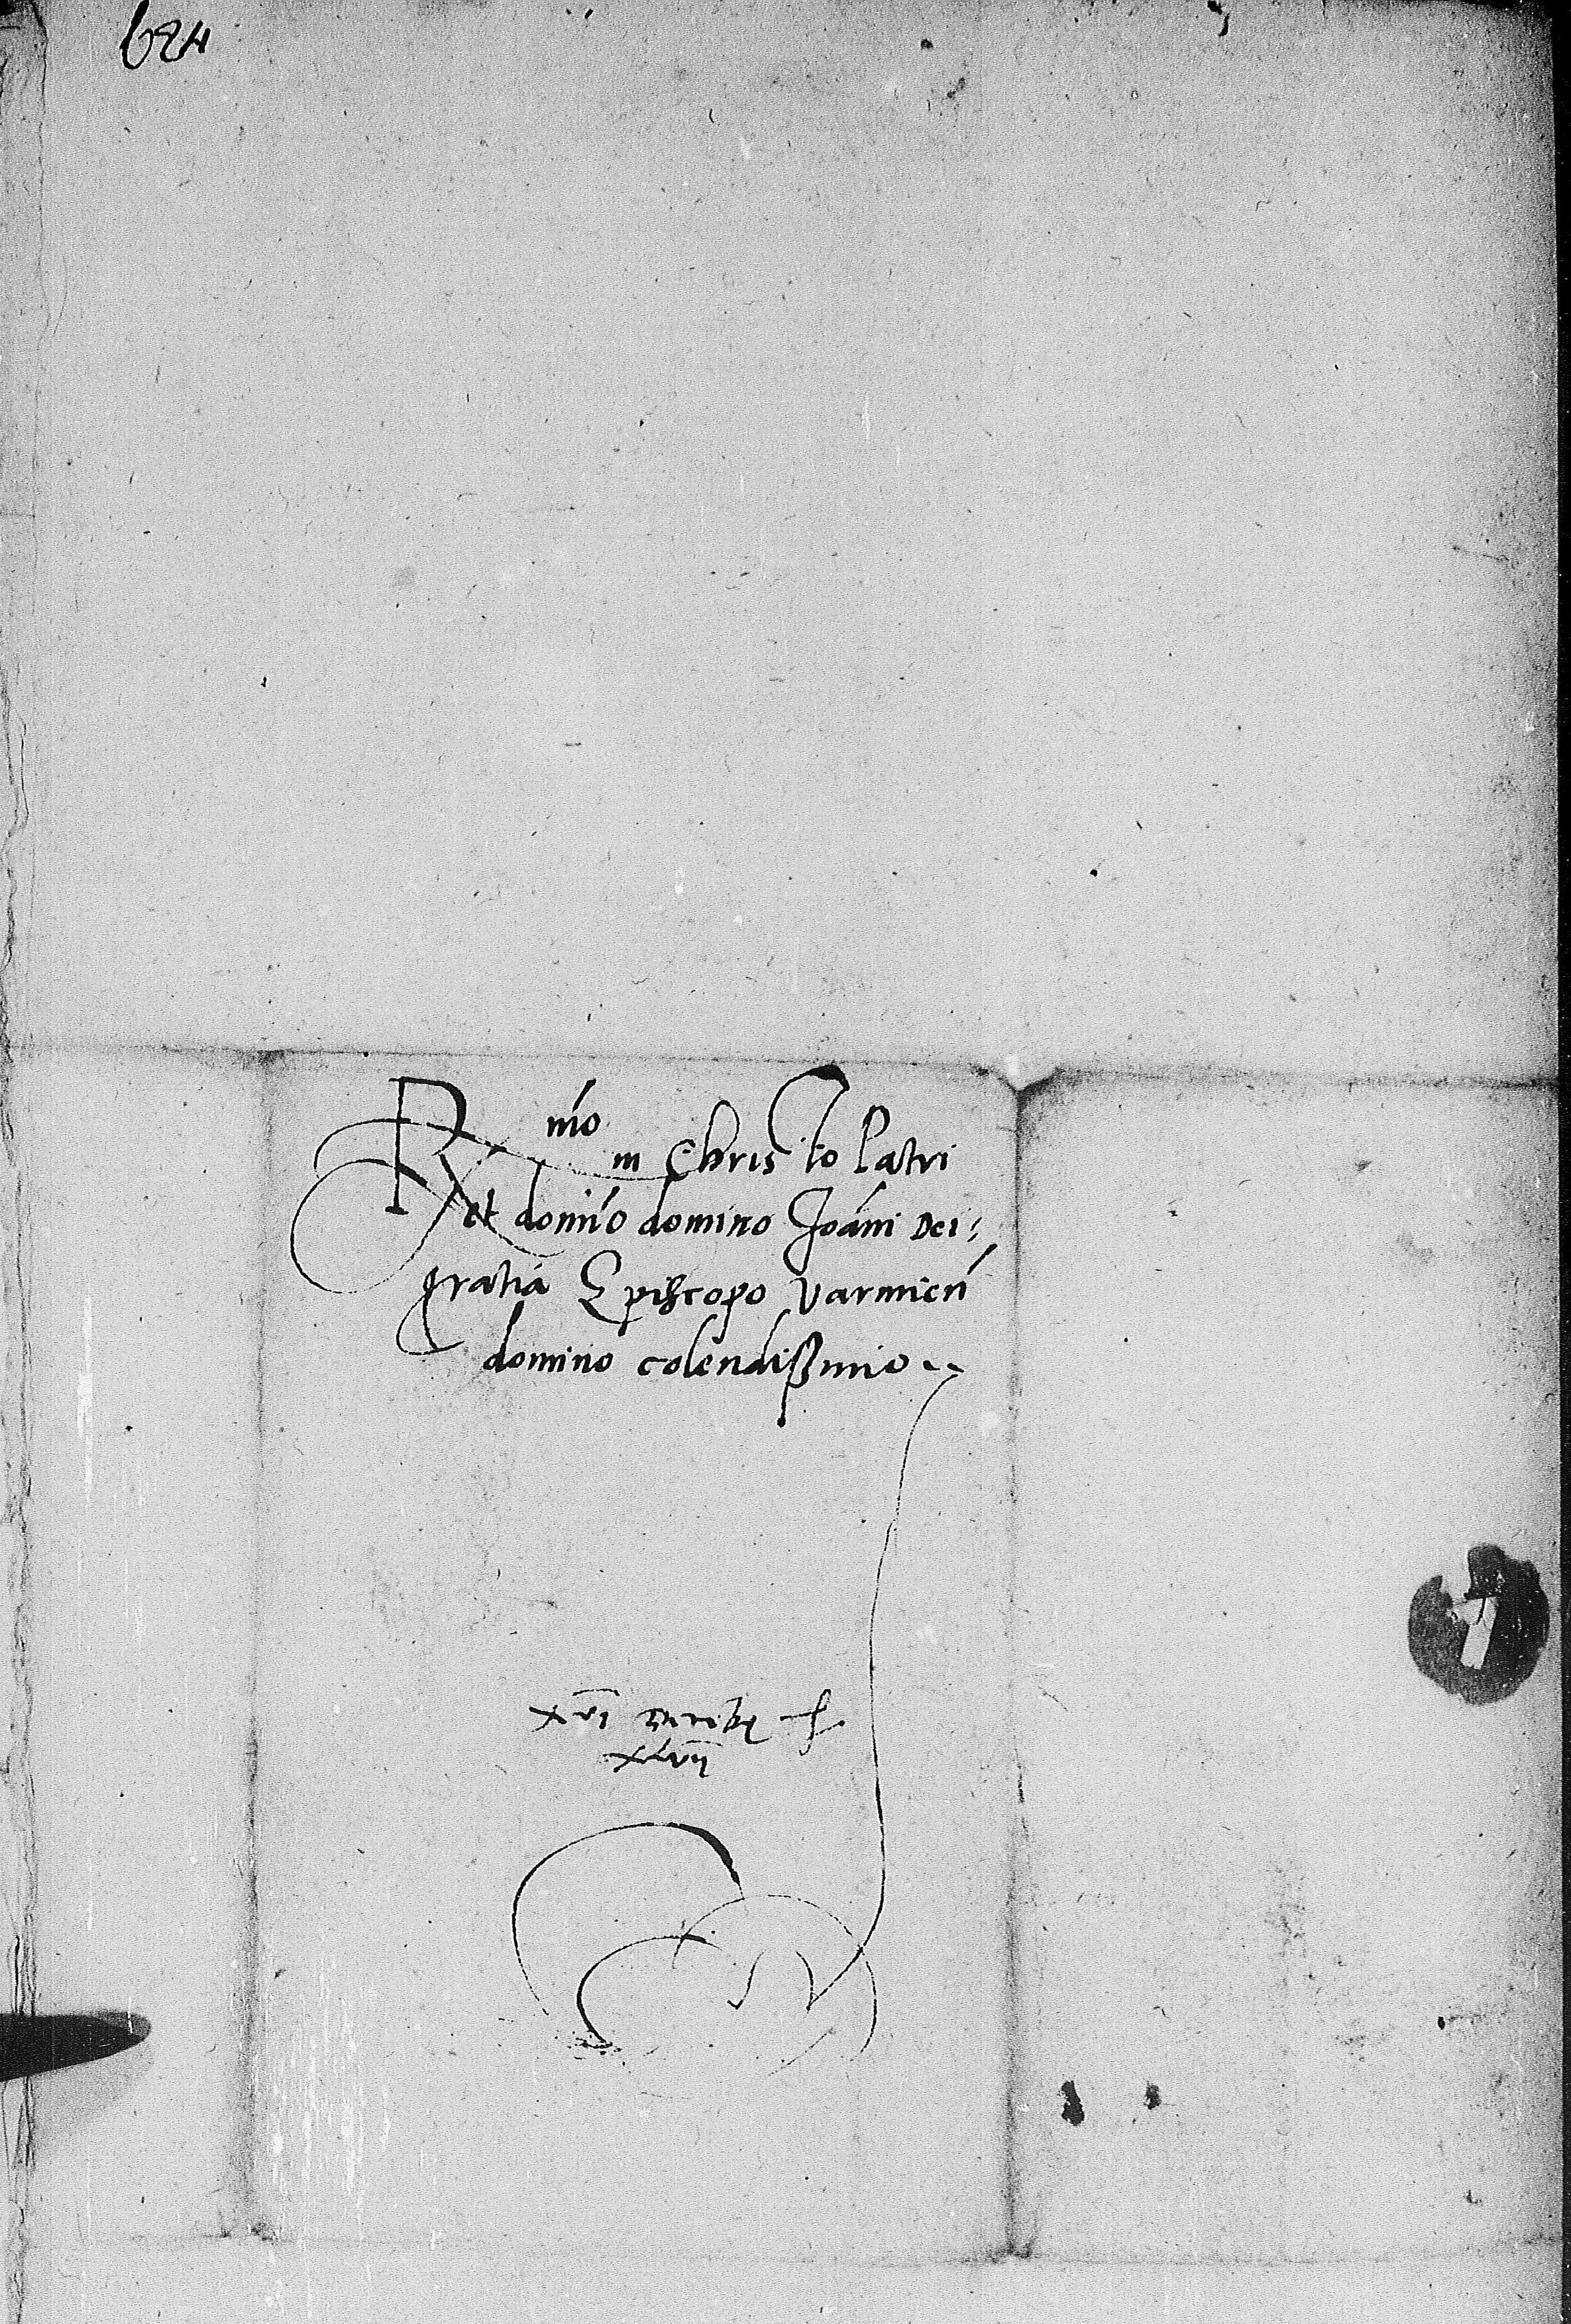 624
R mo
in Christo Patri
et domi͂o domino Joa͂ni Dei
gratia Episcopo Varmien͂
domino colendißimo
XLVII